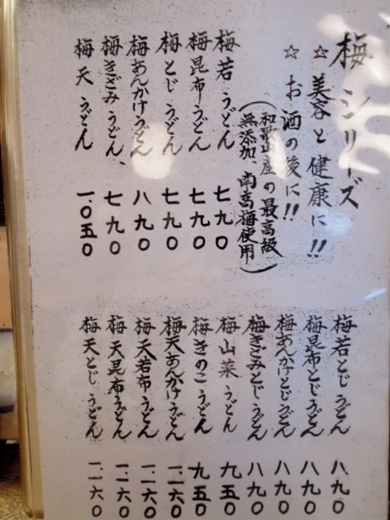 梅シリーズ
☆美容と健康に!!
☆お酒の後に!!
(和歌山産の最高級
無添加、南高梅使用)
梅若うどん 七九〇
梅昆布うどん 七九〇
梅とじうどん 七九〇
梅あんかけうどん 八九〇
梅きざみうどん、 七九〇
梅天うどん 一、〇五〇
梅若とじうどん 八九〇
梅昆布とじうどん 八九〇
梅あんかけとじうどん 八九〇
梅きざみとじうどん 八九〇
梅山菜うどん 九五〇
梅きのこうどん 九五〇
梅天あんかけうどん 一、一六〇
梅天若布うどん 一、一六〇
梅天昆布うどん 一、一六〇
梅天とじうどん 一、一六〇